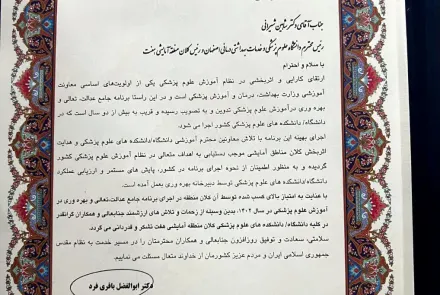 جناب آقای دکتر شاهین شیرانی
رئیس محترم دانشگاه علوم پزشکی و خدمات بهداشتی درمانی اصفهان و رئیس کلان منطقه آمایشی هفت
با سلام و احترام
ارتقای کارایی و اثربخشی در نظام آموزش علوم پزشکی یکی از اولویت‌های اساسی معاونت
آموزشی وزارت بهداشت، درمان و آموزش پزشکی است و در این راستا برنامه جامع عدالت، تعالی و
بهره وری در آموزش علوم پزشکی تدوین و به تصویب رسیده و قریب به بیش از دو سال است که در
دانشگاه/ دانشکده های علوم پزشکی کشور اجرا می شود.
اجرای بهینه این برنامه با تلاش معاونین محترم آموزشی دانشگاه/دانشکده های علوم پزشکی و هدایت
اثربخش کلان مناطق آمایشی موجب دستیابی به اهداف متعالی در نظام آموزش علوم پزشکی کشور
گردیده و به منظور اطمینان از نحوه اجرای برنامه در کشور، پایش های مستمر و ارزیابی عملکرد
دانشگاه/دانشکده های علوم پزشکی توسط دبیرخانه بهره وری بعمل آمده است.
با عنایت به امتیاز بالای کسب شده توسط آن کلان منطقه در اجرای برنامه جامع عدالت،تعالی و بهره وری در
آموزش علوم پزشکی در سال ۱۴۰۲، بدین وسیله از زحمات و تلاش های ارزشمند جنابعالی و همکاران گرانقدر
در کلیه دانشگاه/ دانشکده های علوم پزشکی کلان منطقه آمایشی هفت تشکر و قدردانی می گردد.
سلامتی، سعادت و توفیق روزافزون جنابعالی و همکاران محترمتان را در مسیر خدمت به نظام مقدس
جمهوری اسلامی ایران و مردم عزیز کشورمان از خداوند متعال مسئلت می نمایم.
دکتر ابوالفضل باقری فرد